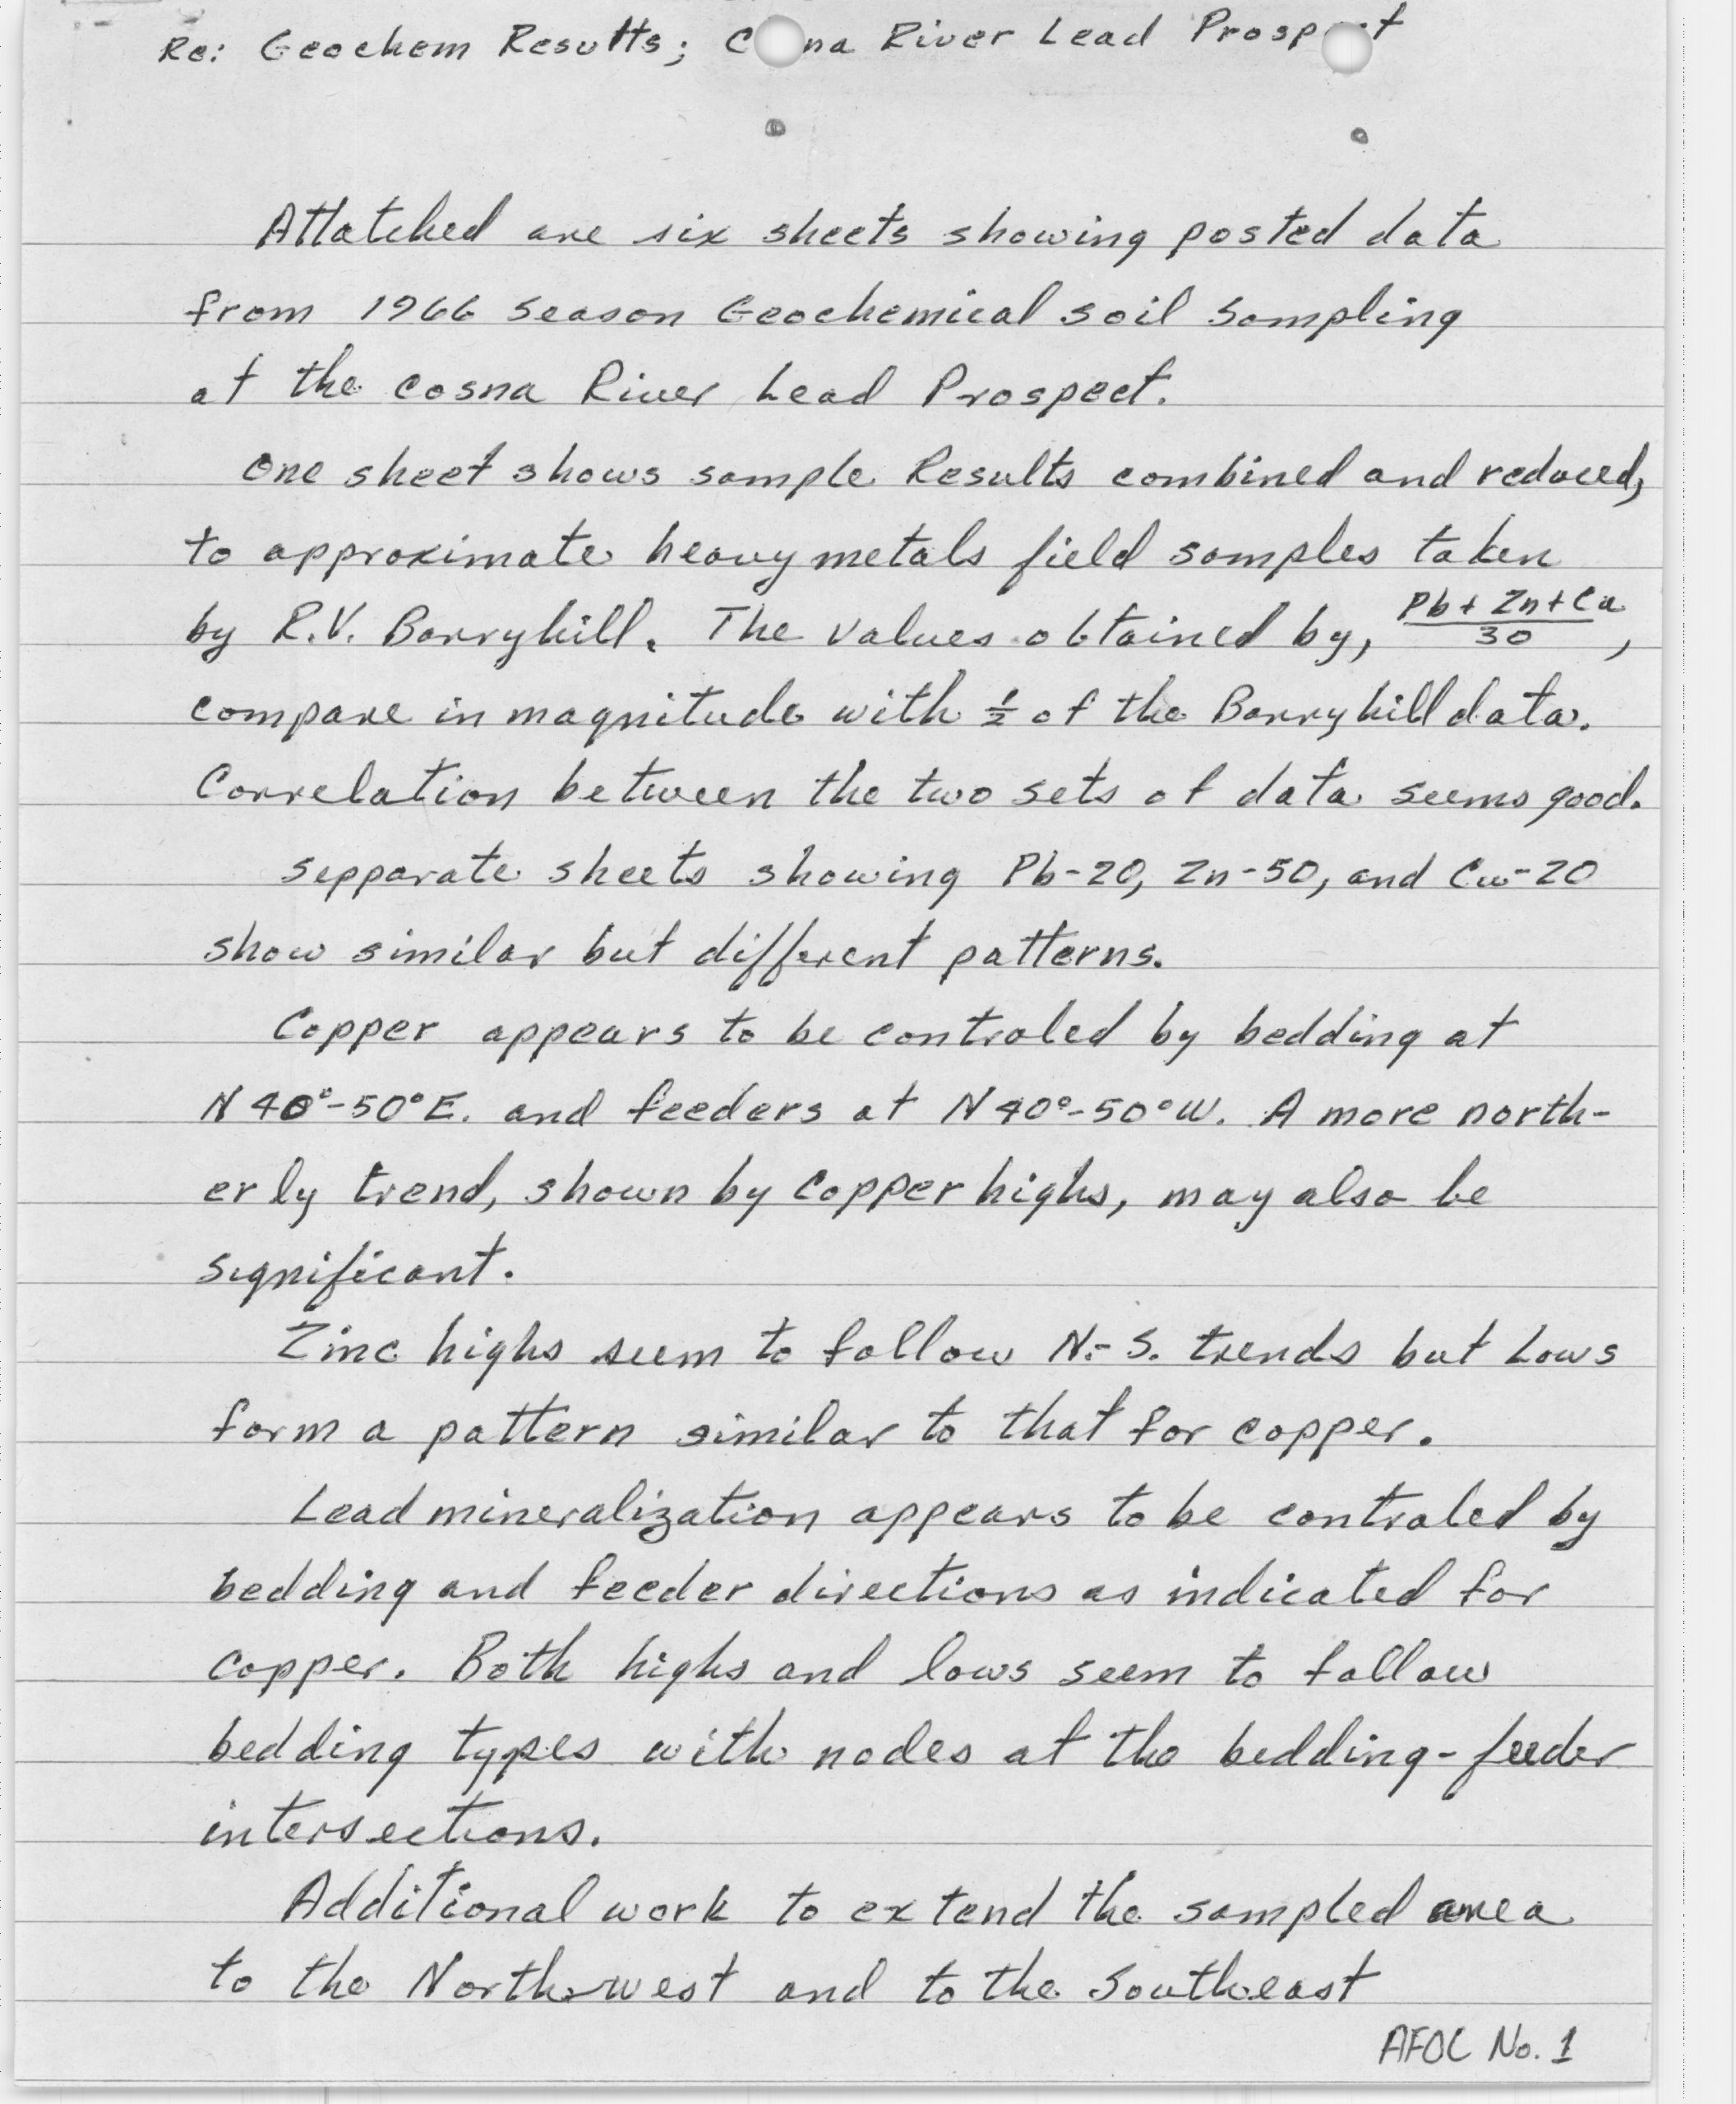 Re: Geochem Results; C na River Lead Prosp t
Attatched are six sheets showing posted data
from 1966 season Geochemical soil sampling
at the Cosna River Lead Prospect.
One sheet shows sample Results combined and reduced,
to approximate heavy metals field samples taken
by R.V. Barryhill. The values obtained by, Pb + Zn + Cu / 30,
compare in magnitude with 1/2 of the Barryhill data.
Correlation between the two sets of data seems good.
Sepparate sheets showing Pb-20, Zn-50, and Cu-20
show similar but different patterns.
Copper appears to be controled by bedding at
N 40°-50°E. and feeders at N 40°-50°W. A more north-
erly trend, shown by copper highs, may also be
significant.
Zinc highs seem to follow N.-S. trends but Lows
form a pattern similar to that for copper.
Lead mineralization appears to be controled by
bedding and feeder directions as indicated for
copper. Both highs and lows seem to follow
bedding types with nodes at the bedding-feeder
intersections.
Additional work to extend the sampled area
to the Northwest and to the Southeast
AFOC No. 1